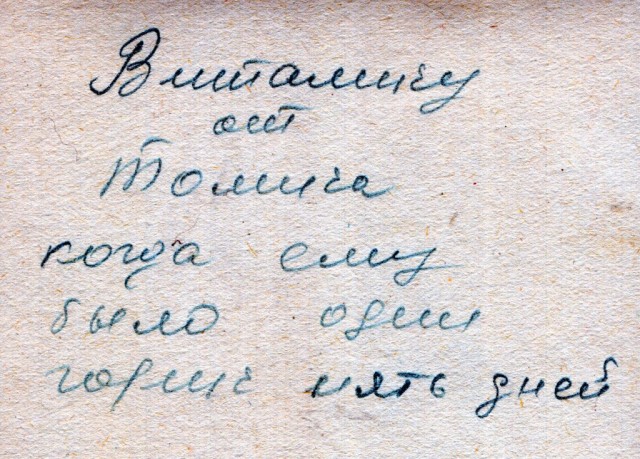 Виталичу
от
Толича
когда ему
было один
годич пять дней